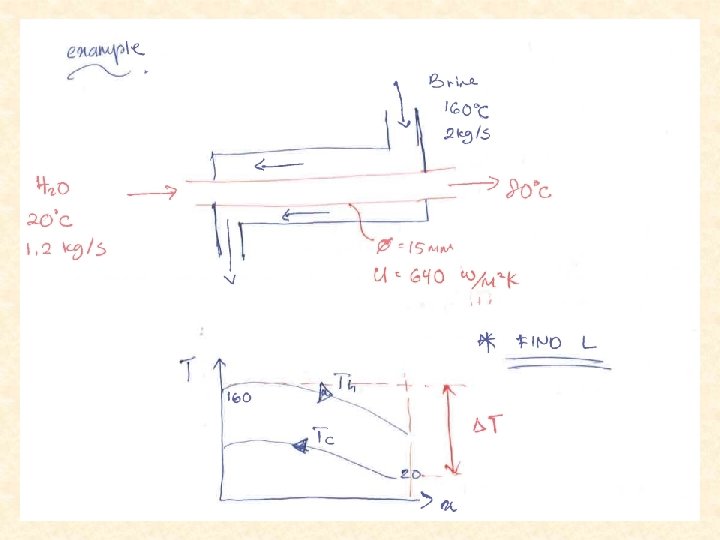 example
Brine
160°C
2kg/s
H2O
20°C
1.2 kg/s
80°C
Ø = 15 mm
U = 640 W/m²K
* FIND L
T
160
Th
Tc
ΔT
20
x